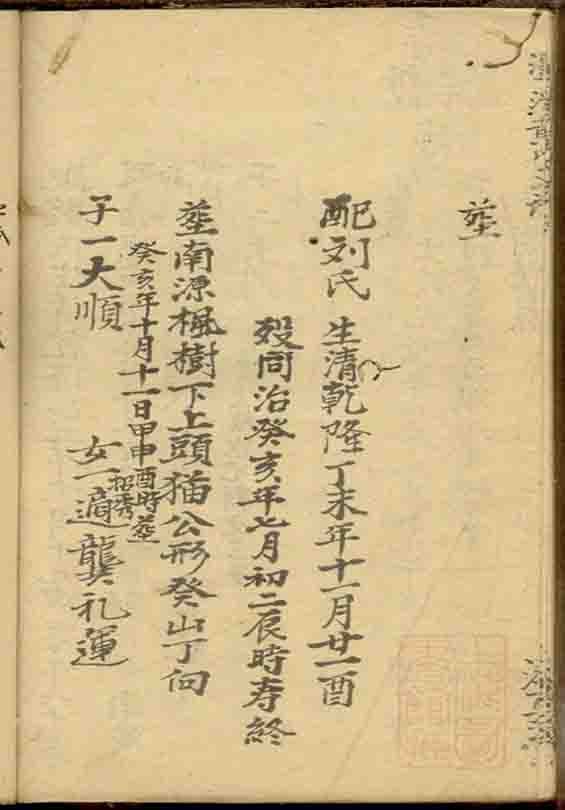 塟
配刘氏 生清乾隆丁未年十一月廿一酉
殁同治癸亥年七月初二辰時寿終
塟南源楓樹下上頭猫公形癸山丁向
癸亥年十月十一日甲申酉時塟
子一大順 女一招秀適龔礼運